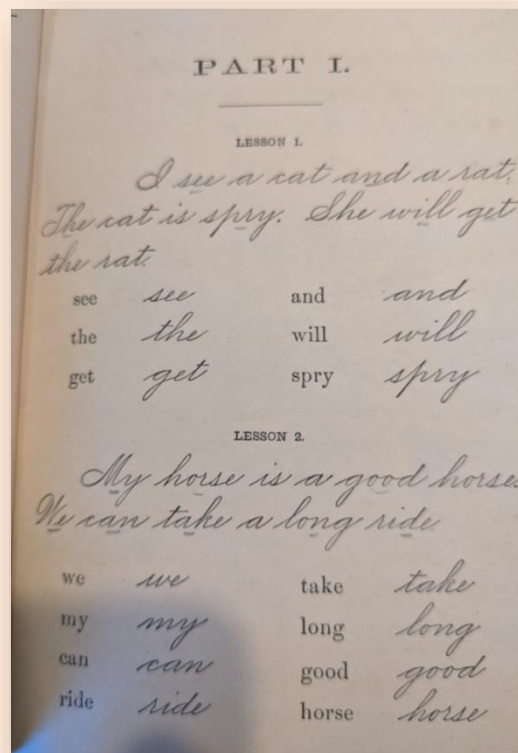 PART I.
LESSON 1.
I see a cat and a rat.
The cat is spry. She will get
the rat.
see see and and
the the will will
get get spry spry
LESSON 2.
My horse is a good horse.
We can take a long ride.
we we take take
my my long long
can can good good
ride ride horse horse